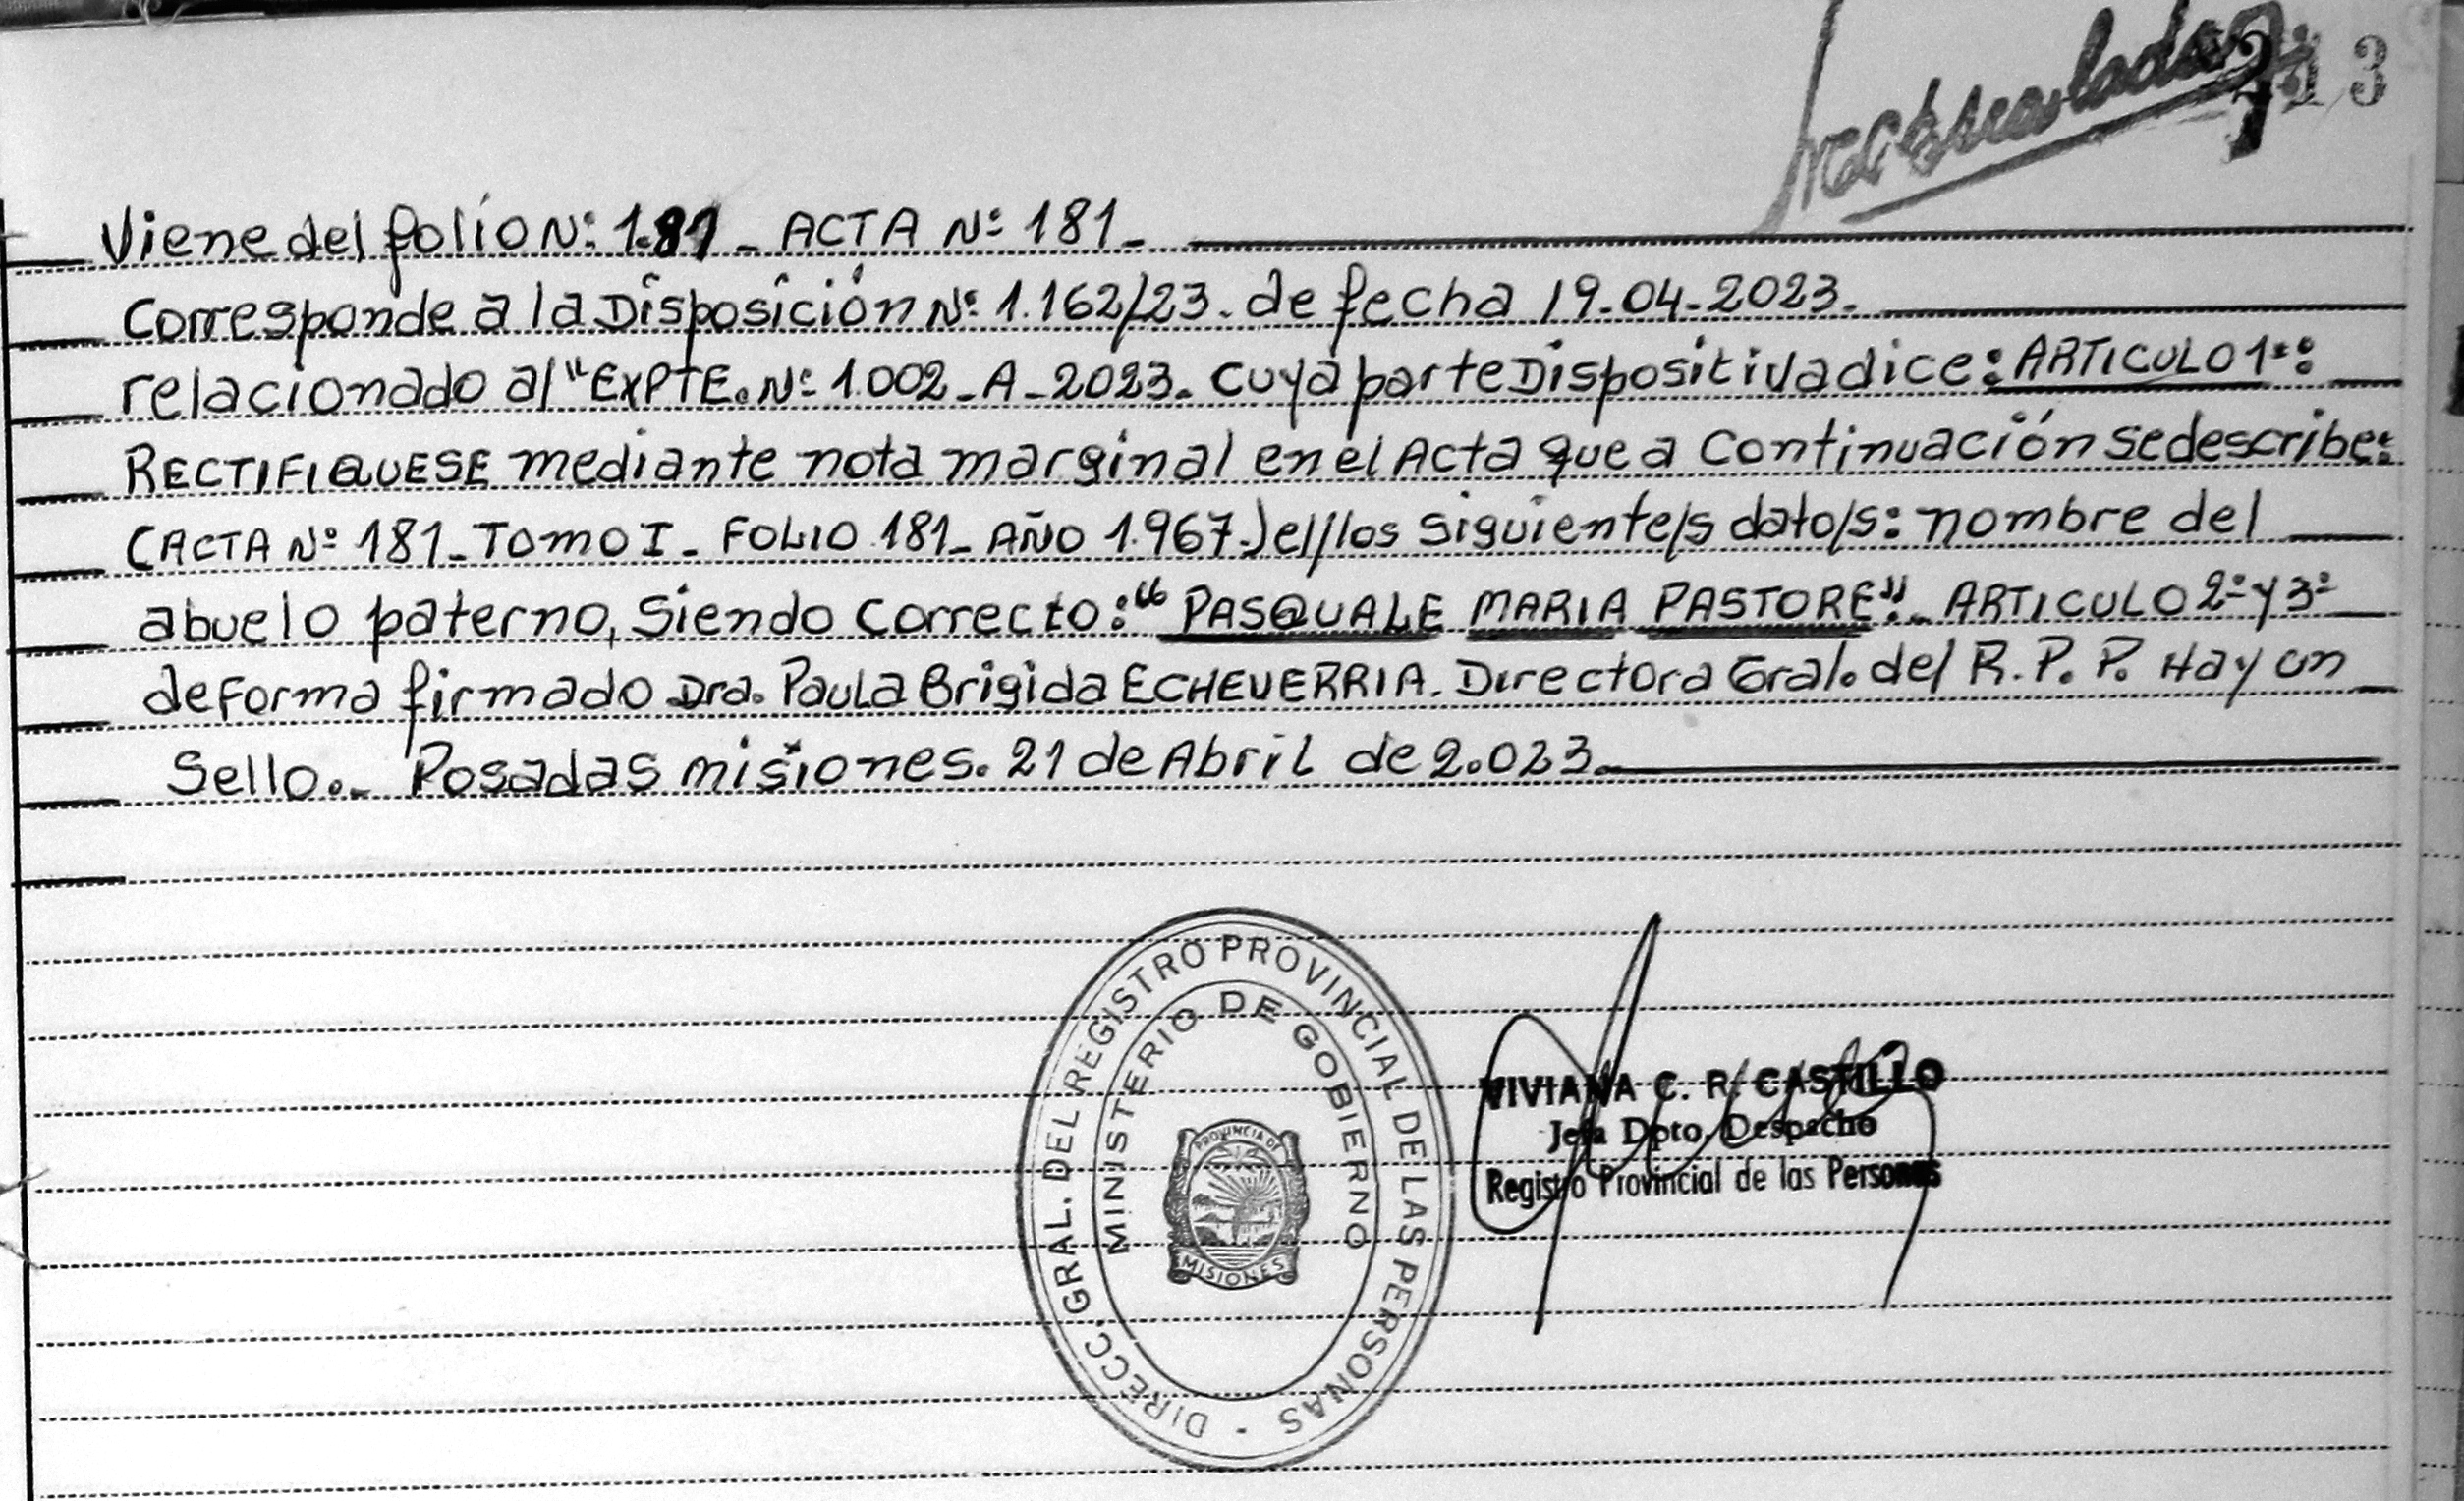 3
Viene del folio Nº: 181 - ACTA Nº 181-
Corresponde a la Disposición Nº 1.162/23. de fecha 19-04-2023.
relacionado al "EXPTE. Nº 1.002-A-2023. cuya parte Dispositiva dice: ARTICULO 1º:
RECTIFIQUESE mediante nota marginal en el Acta que a continuación se describe:
(ACTA Nº 181-TOMO I- FOLIO 181- AÑO 1.967-) el/los siguiente/s dato/s: nombre del
abuelo paterno, siendo correcto: "PASQUALE MARIA PASTORE". ARTICULO 2º y 3º
de forma firmado Dra. Paula Brigida ECHEVERRIA. Directora Gral. del R.P.P. Hay un
Sello.- Posadas misiones. 21 de Abril de 2.023.-
DIRECC. GRAL. DEL REGISTRO PROVINCIAL DE LAS PERSONAS -
MINISTERIO DE GOBIERNO
PROVINCIA DE
MISIONES
VIVIANA C. R. CASTILLO
Jefa Dpto. Despacho
Registro Provincial de las Personas